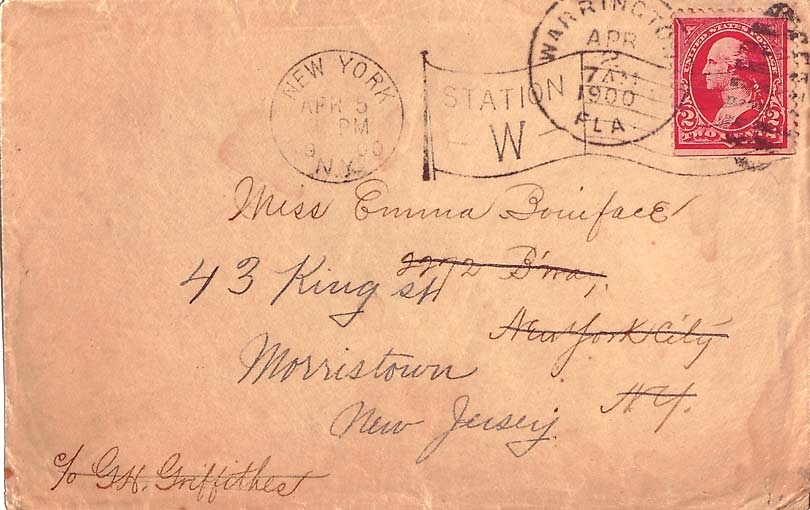 NEW YORK
APR 5
PM
N.Y.
STATION
W
WARRINGTON
APR
2
7AM
1900
FLA
UNITED STATES POSTAGE
2 2
TWO CENTS
Miss Emma Boniface
2272 B'way,
43 King st
New York City
Morristown
N.Y.
New Jersey
c/o G.H. Griffithes